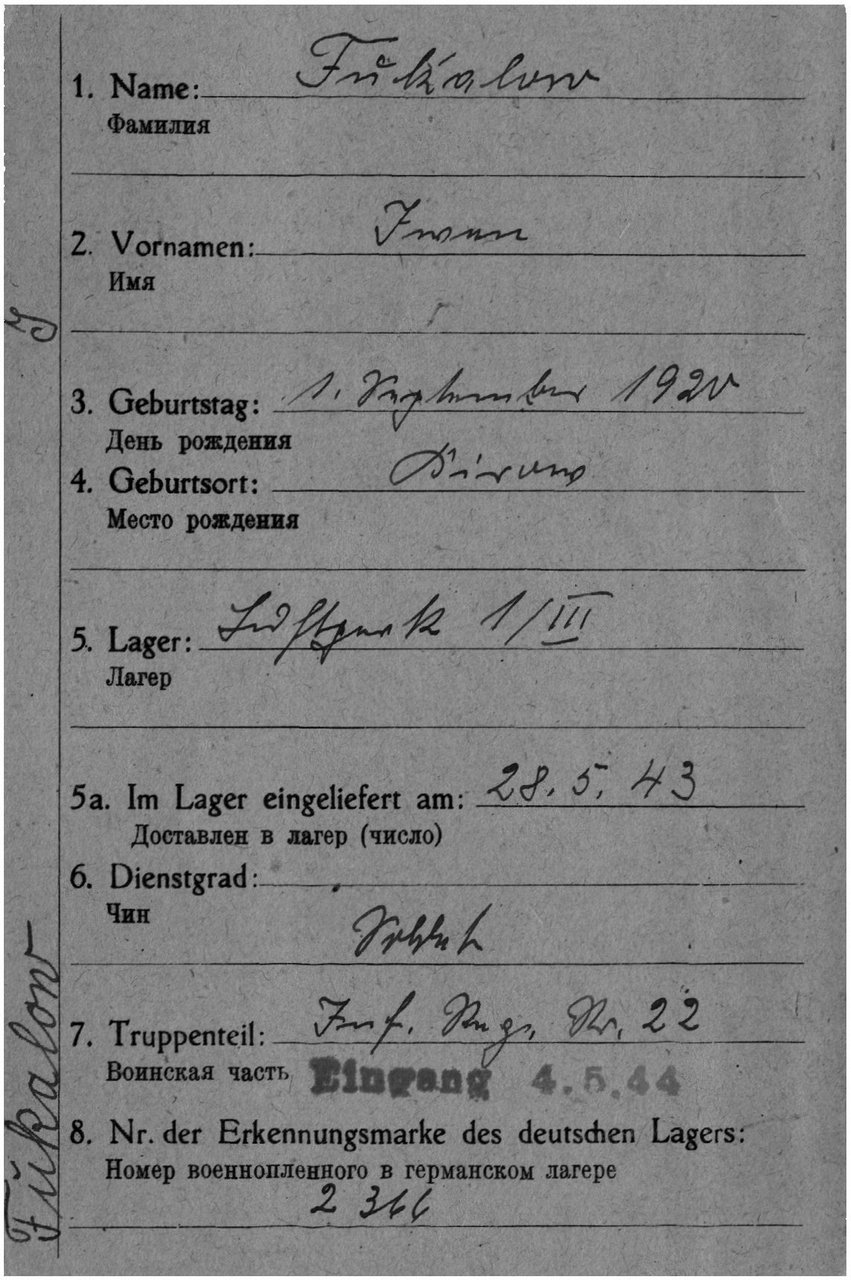 1. Name: Fukalow
Фамилия
2. Vornamen: Iwan
Имя
J
3. Geburtstag: 1. September 1920
День рождения
4. Geburtsort: Kirow
Место рождения
5. Lager: Luftpark 1/III
Лагер
5a. Im Lager eingeliefert am: 28.5.43
Доставлен в лагер (число)
6. Dienstgrad:
Чин
Soldat
7. Truppenteil: Inf. Reg. Nr. 22
Воинская часть Eingang 4.5.44
8. Nr. der Erkennungsmarke des deutschen Lagers:
Номер военнопленного в германском лагере
2 366
Fukalow